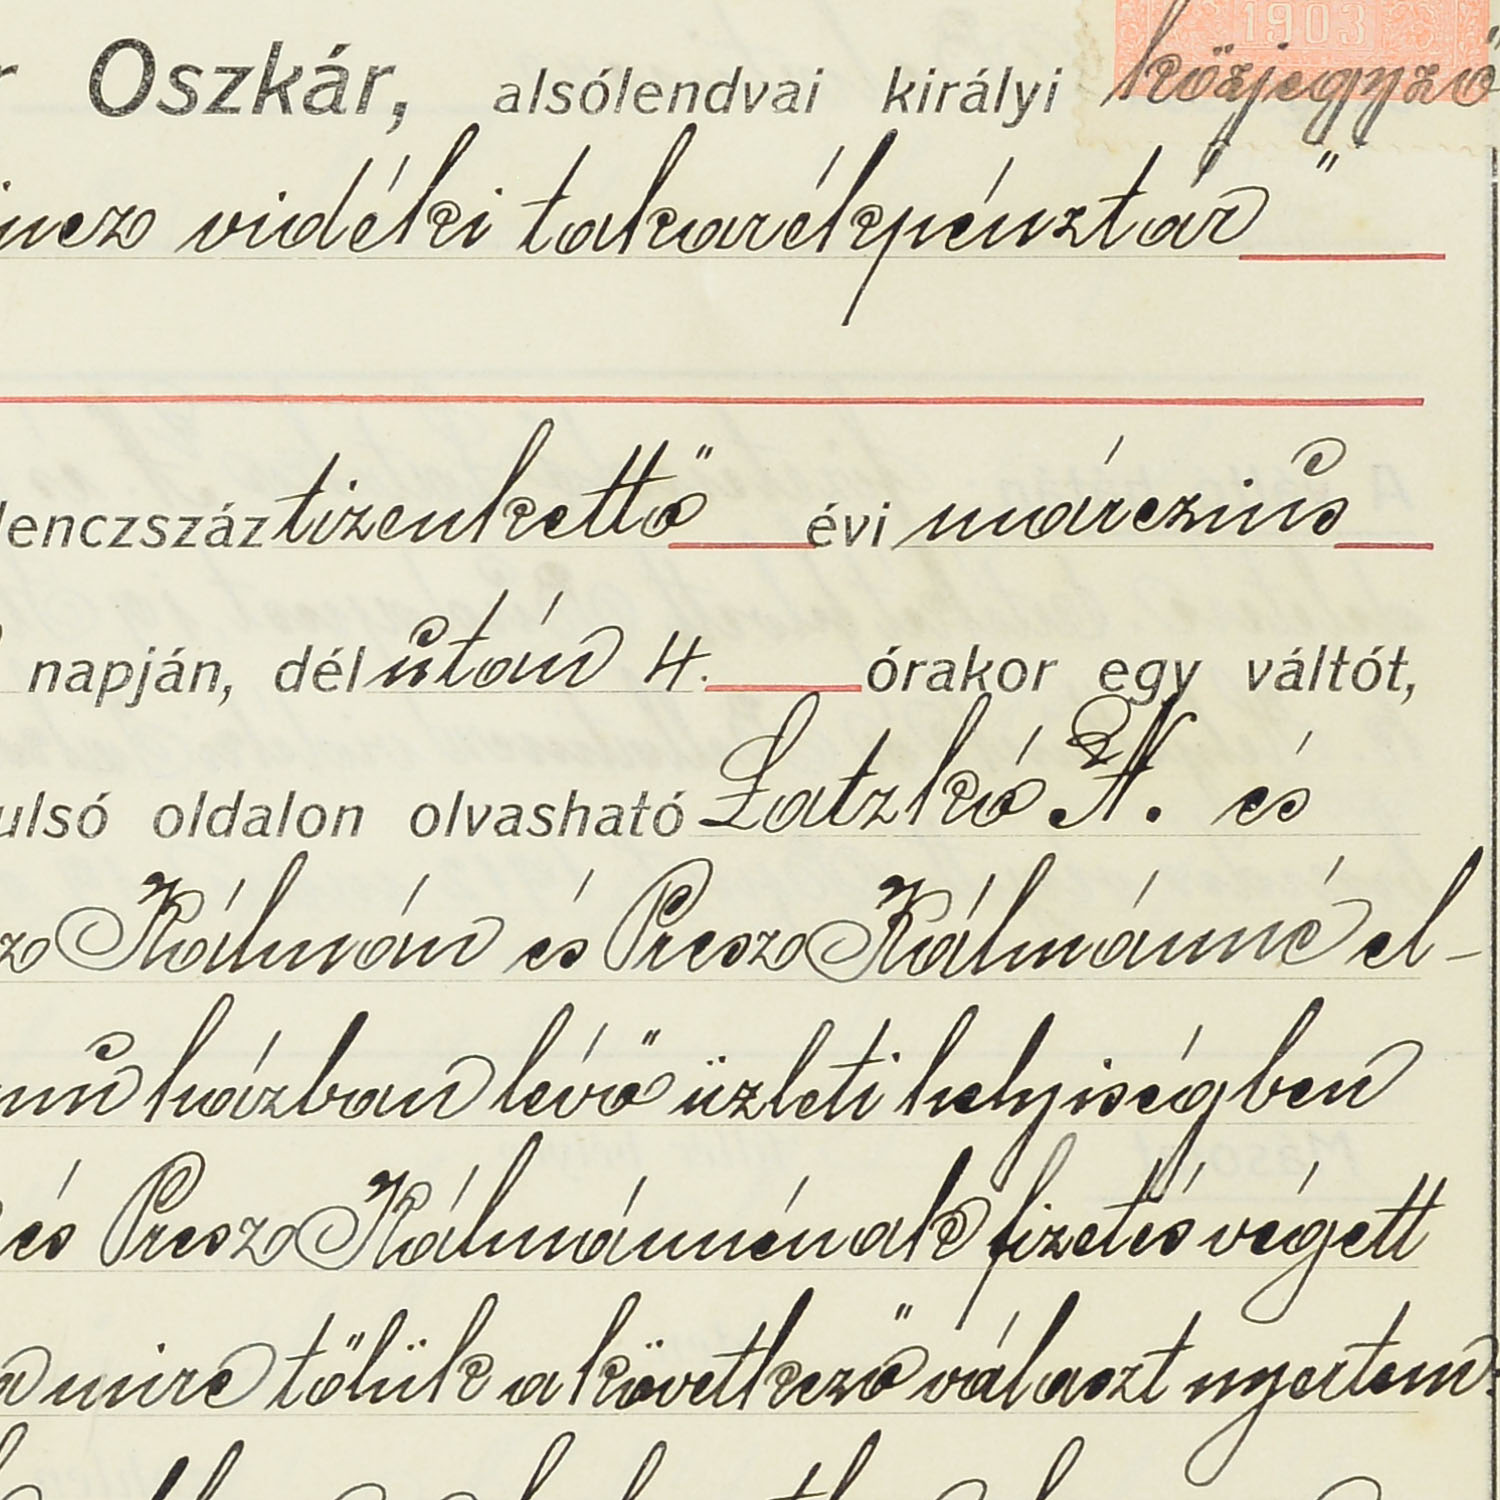 1903
r Oszkár, alsólendvai királyi közjegyző
incz vidéki takarékpénztár"
lenczszáz tizenkettő évi márczius
napján, dél után 4. órakor egy váltót,
ulsó oldalon olvasható Latzkó N. és
sz Kálmán és Presz Kálmánné el-
mű házban lévő üzleti helyiségben
és Presz Kálmánnénak fizetés végett
a mire tőlük a következő választ nyertem: